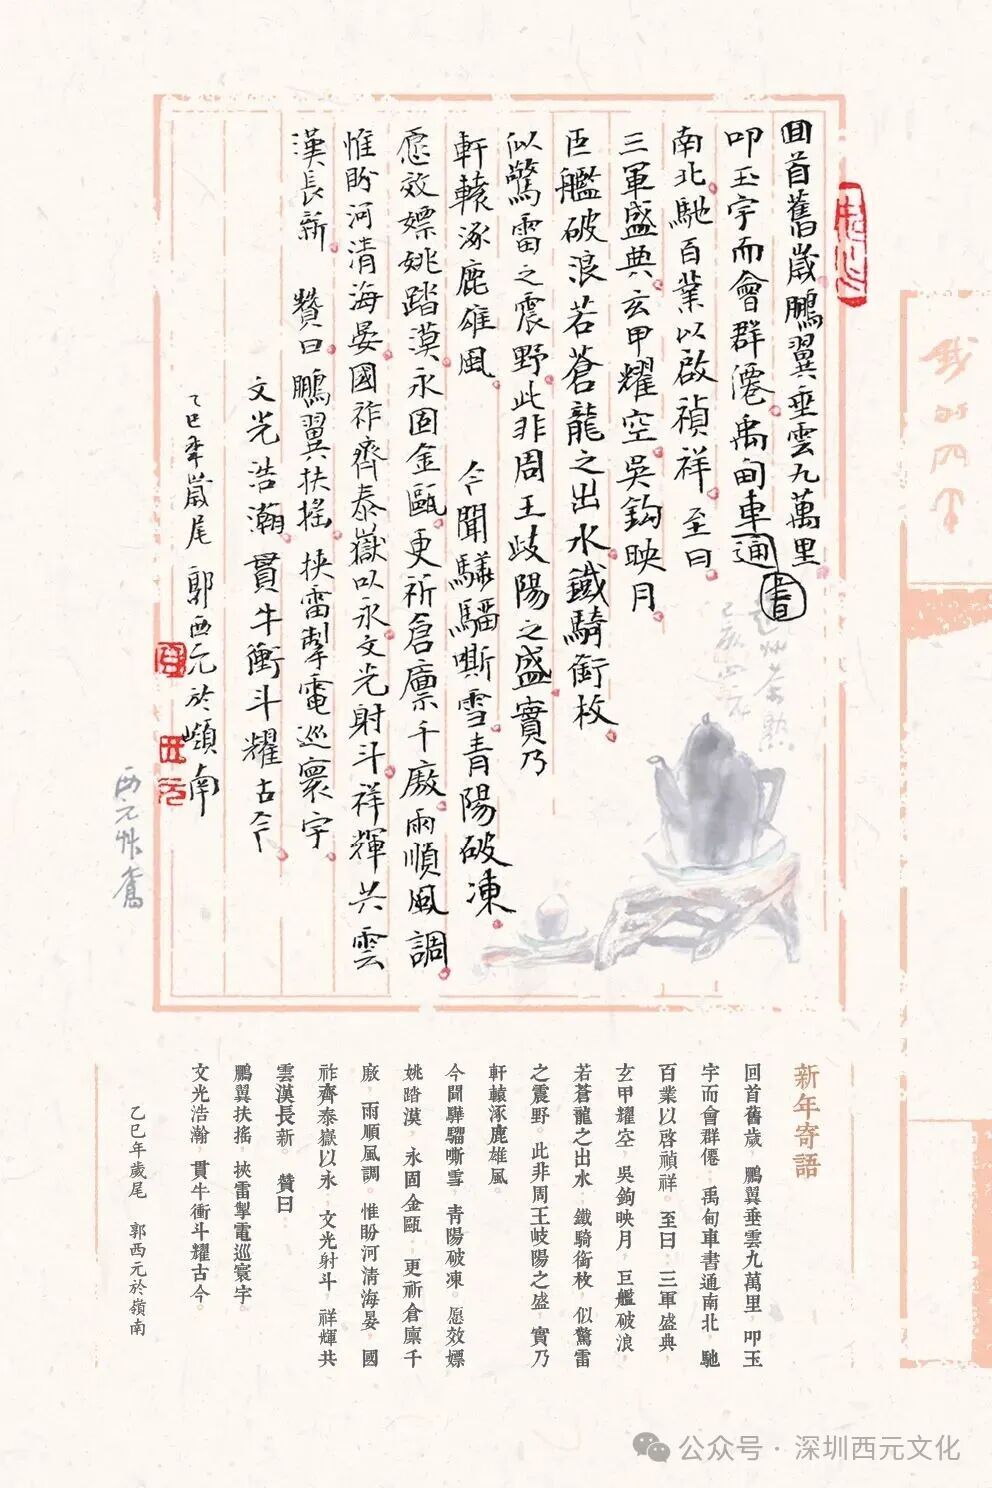 回首舊歲鵬翼垂雲九萬里
叩玉宇而會群僊禹甸車通書
南北馳百業以啟禎祥至曰
三軍盛典玄甲耀空吳鈎映月
巨艦破浪若蒼龍之出水鐵騎銜枚
似驚雷之震野此非周王岐陽之盛實乃
軒轅涿鹿雄風 今聞驊騮嘶雪青陽破凍
愿效嫖姚踏漠永固金甌更祈倉廪千廒雨順風調
惟盼河清海晏國祚齊泰嶽以永文光射斗祥輝共雲
漢長新 贊曰鵬翼扶搖挾雷掣電巡寰宇
文光浩瀚貫牛衝斗耀古今
乙巳年歲尾 郭西元於嶺南
新年寄語
回首舊歲，鵬翼垂雲九萬里，叩玉
宇而會群僊，禹甸車書通南北，馳
百業以啓禎祥。至曰，三軍盛典，
玄甲耀空，吳鉤映月，巨艦破浪，
若蒼龍之出水，鐵騎銜枚，似驚雷
之震野。此非周王岐陽之盛，實乃
軒轅涿鹿雄風。
今聞驊騮嘶雪，青陽破凍。愿效嫖
姚踏漠，永固金甌，更祈倉廪千
廒，雨順風調。惟盼河清海晏，國
祚齊泰嶽以永，文光射斗，祥輝共
雲漢長新。 贊曰：
鵬翼扶搖，挾雷掣電巡寰宇。
文光浩瀚，貫牛衝斗耀古今。
乙巳年歲尾 郭西元於嶺南
公众号·深圳西元文化